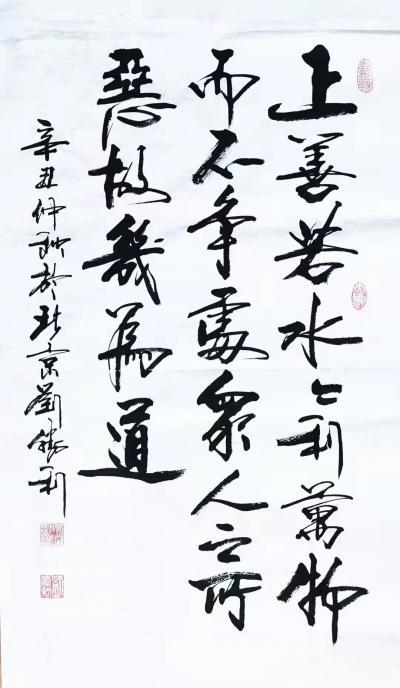 上善若水々利萬物
而不争處衆人之所
惡故幾為道
辛丑仲秋於北京劉勝利